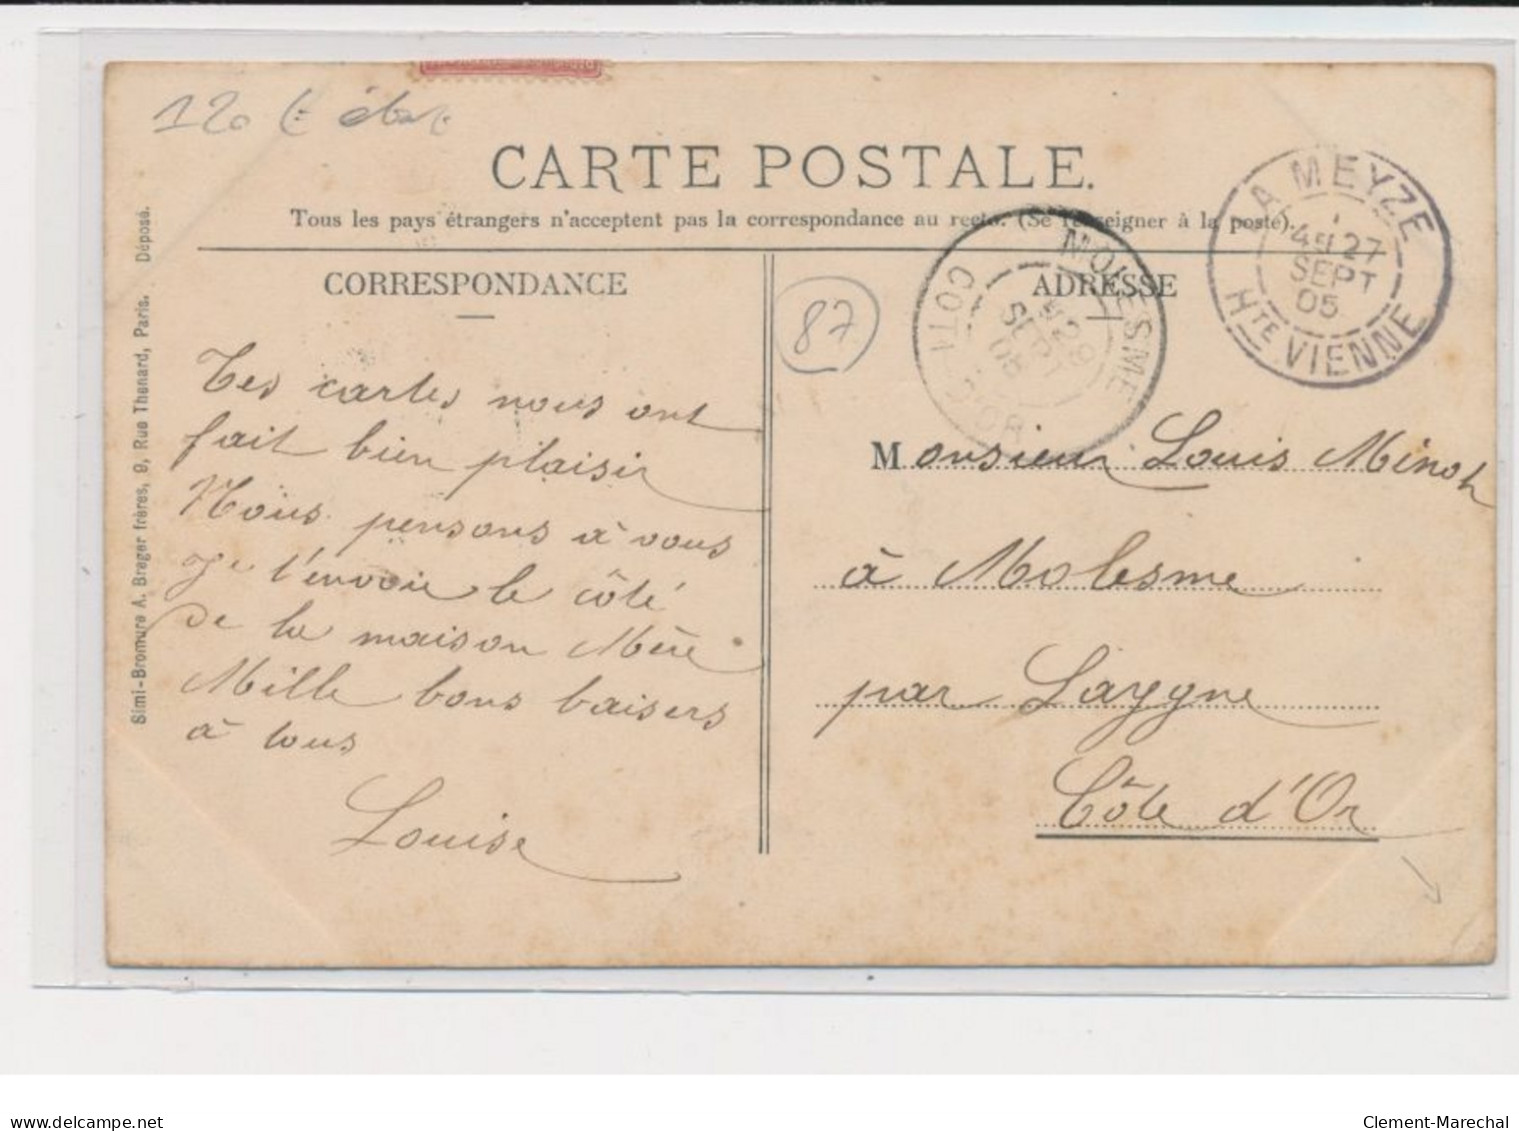 120 E état
CARTE POSTALE.
Tous les pays étrangers n'acceptent pas la correspondance au recto. (Se renseigner à la poste).
CORRESPONDANCE
ADRESSE
87
LA MEYZE
4E 27
SEPT
05
HTE VIENNE
MOLESME
28
SEPT
05
COTE D'OR
Tes cartes nous ont
fait bien plaisir
Nous pensons à vous
Je t'envoie le côté
de la maison Mère
Mille bons baisers
à tous
Louise
Monsieur Louis Minot
à Molesme
par Laygne
Côte d'Or
Simi-Bromure A. Breger frères, 9, Rue Thenard, Paris. Déposé.
www.delcampe.net
Clement-Marechal